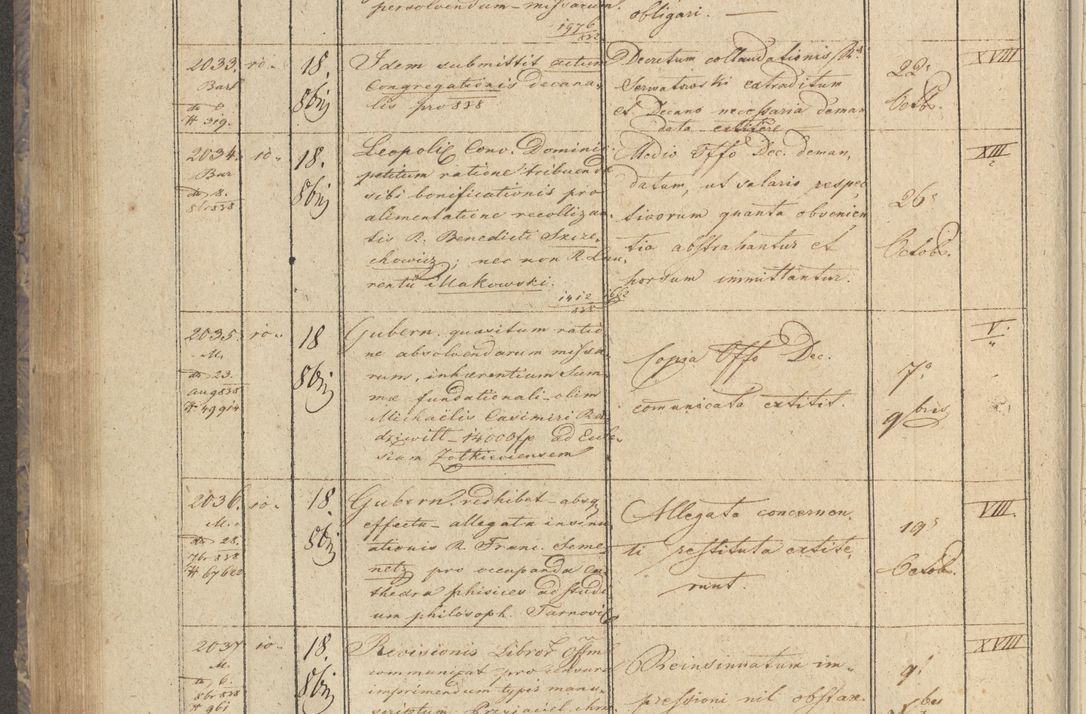 persolvendum missarum.
1976
838
obligari. —
2033. ro.
Bart
319.
18.
8bris
Idem submittit actum
Congregationis decana-
lis pro 838
Decretum collaudationis
Serwatowski extraditum
et Decano necessaria deman
data extitere
22.
Octob.
XVIII
2034. ro.
Bar
8.
8br 838
18.
8bris
Leopoli Conv. Dominic.
petitum ratione tribuendi
sibi bonificationis pro
alimentatione recollizan-
tis R. Benedicti Skize,
chowicz; nec non R. Lau-
rentii Makowski.
1412
838
Medio Offo Dec. deman,
datum, ut salaris respec
tivorum quanta obvenien
tia abstrahantur et
horsum immittantur.
26
Octob.
XIII
2035. ro.
M.
dto 23.
aug 838
# 49914
18
8bris
Gubern. quaesitum ratio
ne absolvendarum missa-
rum, inhaerentium Sum
mae fundationali olim
Michaelis Casimiri Ra-
dziwill 14000 fp ad Eccle-
siam Zolkieviensem
Copia Offo Dec.
comunicata extitit.
7
9bris
V.
2036. ro.
M.
dto 28.
7br 838
# 67620
18.
8bris
Gubern. redhibet absq
effectu allegata insinu
ationis R. Franc. Seme
netz pro occupanda ca-
thedra phisices ad studi
um philosoph. Tarnovi
Allegata concernen.
ti restituta extite,
runt.
19
Octob.
VIII.
2037 ro.
M.
dto 6.
8br 838
# 961
18.
8bris
Revisionis Libror. offm
communicat pro censura
imprimendum typis manu-
scriptum Przyjaciel chrz
Reinsinuatum im-
pressioni nil obstare
9
XVIII